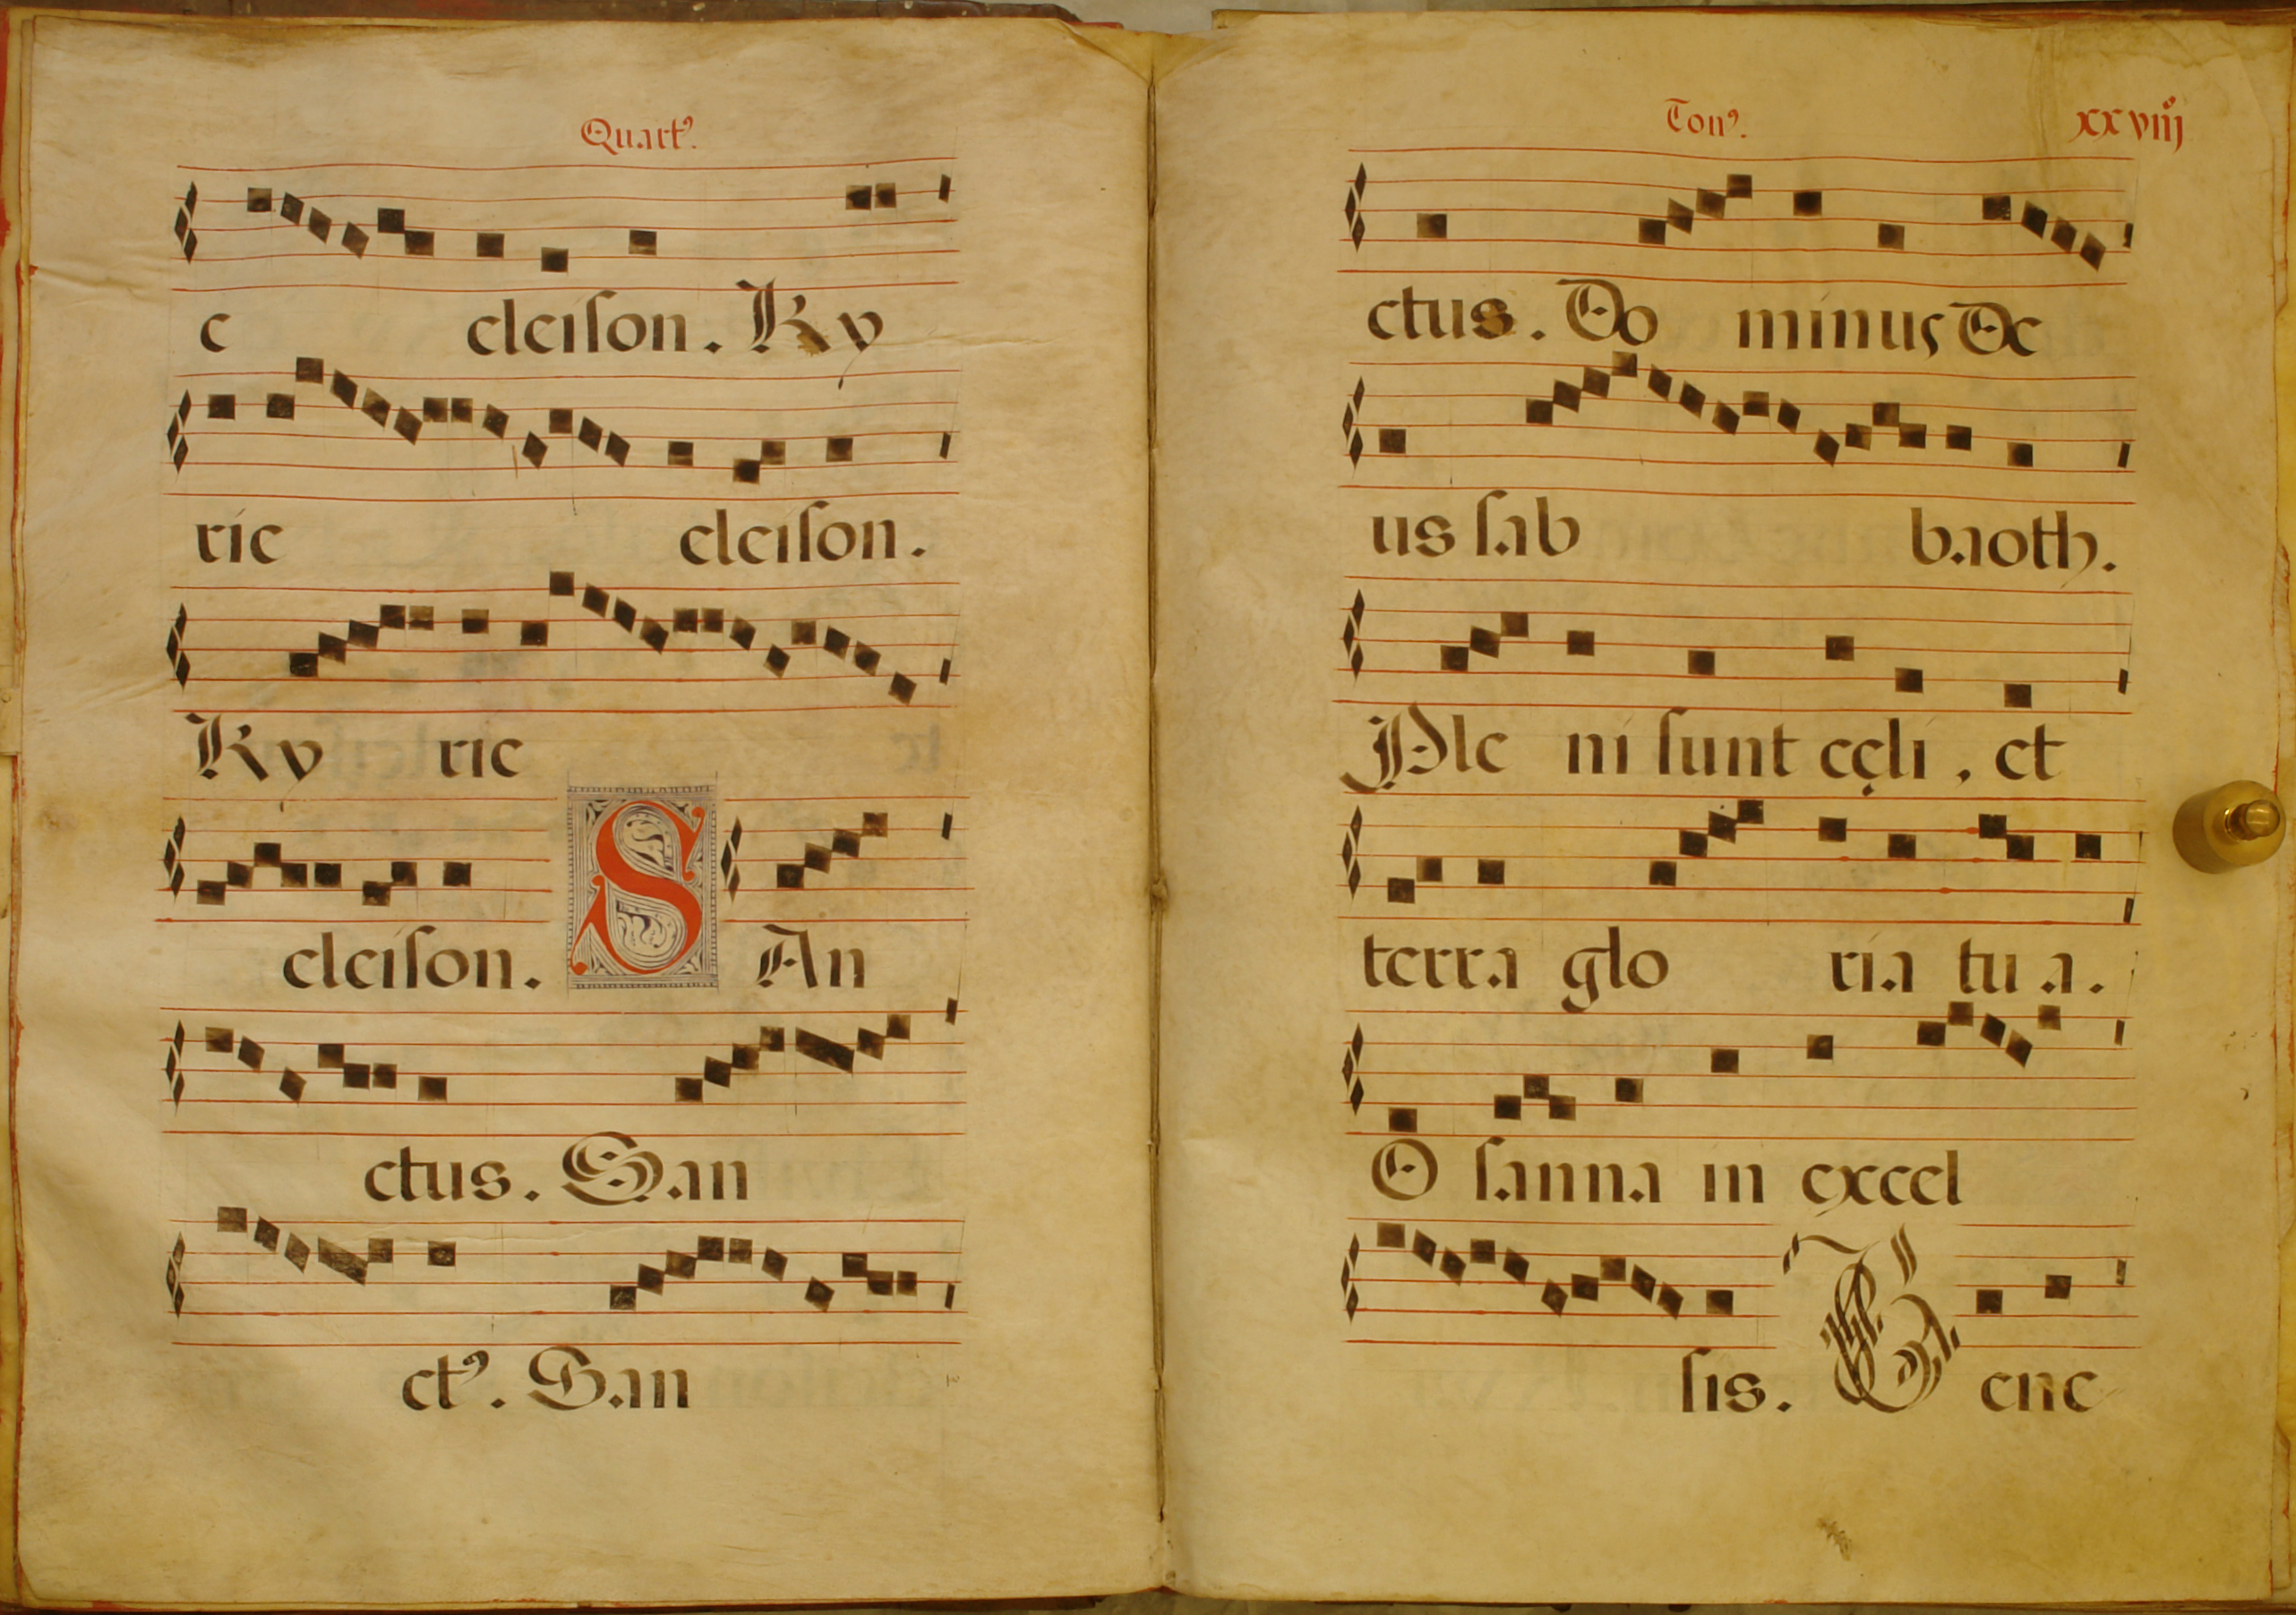 Quartꝰ.
e eleiſon. Ky
rie eleiſon.
Ky rie
eleiſon. SAn
ctus. San
ctꝰ. San
Tonꝰ. xxviiij
ctus. Do minus De
us ſab baoth.
Ple ni ſunt cęli, et
terra glo ria tu a.
O ſanna in excel
ſis. Bene